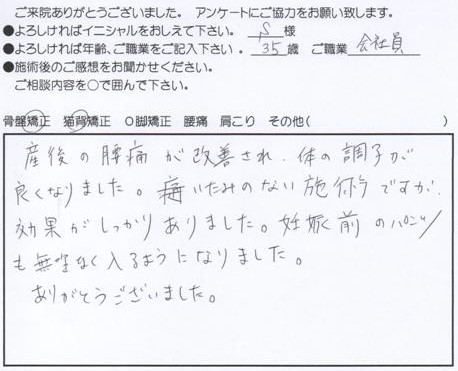 ご来院ありがとうございました。 アンケートにご協力をお願い致します。
●よろしければイニシャルをおしえて下さい。 S 様
●よろしければ年齢、ご職業をご記入下さい。 35 歳 ご職業 会社員
●施術後のご感想をお聞かせください。
ご相談内容を○で囲んで下さい。
骨盤矯正 猫背矯正 O脚矯正 腰痛 肩こり その他( )
産後の腰痛が改善され、体の調子が
良くなりました。痛いたみのない施術ですが、
効果がしっかりありました。妊娠前のパンツ
も無理なく入るようになりました。
ありがとうございました。